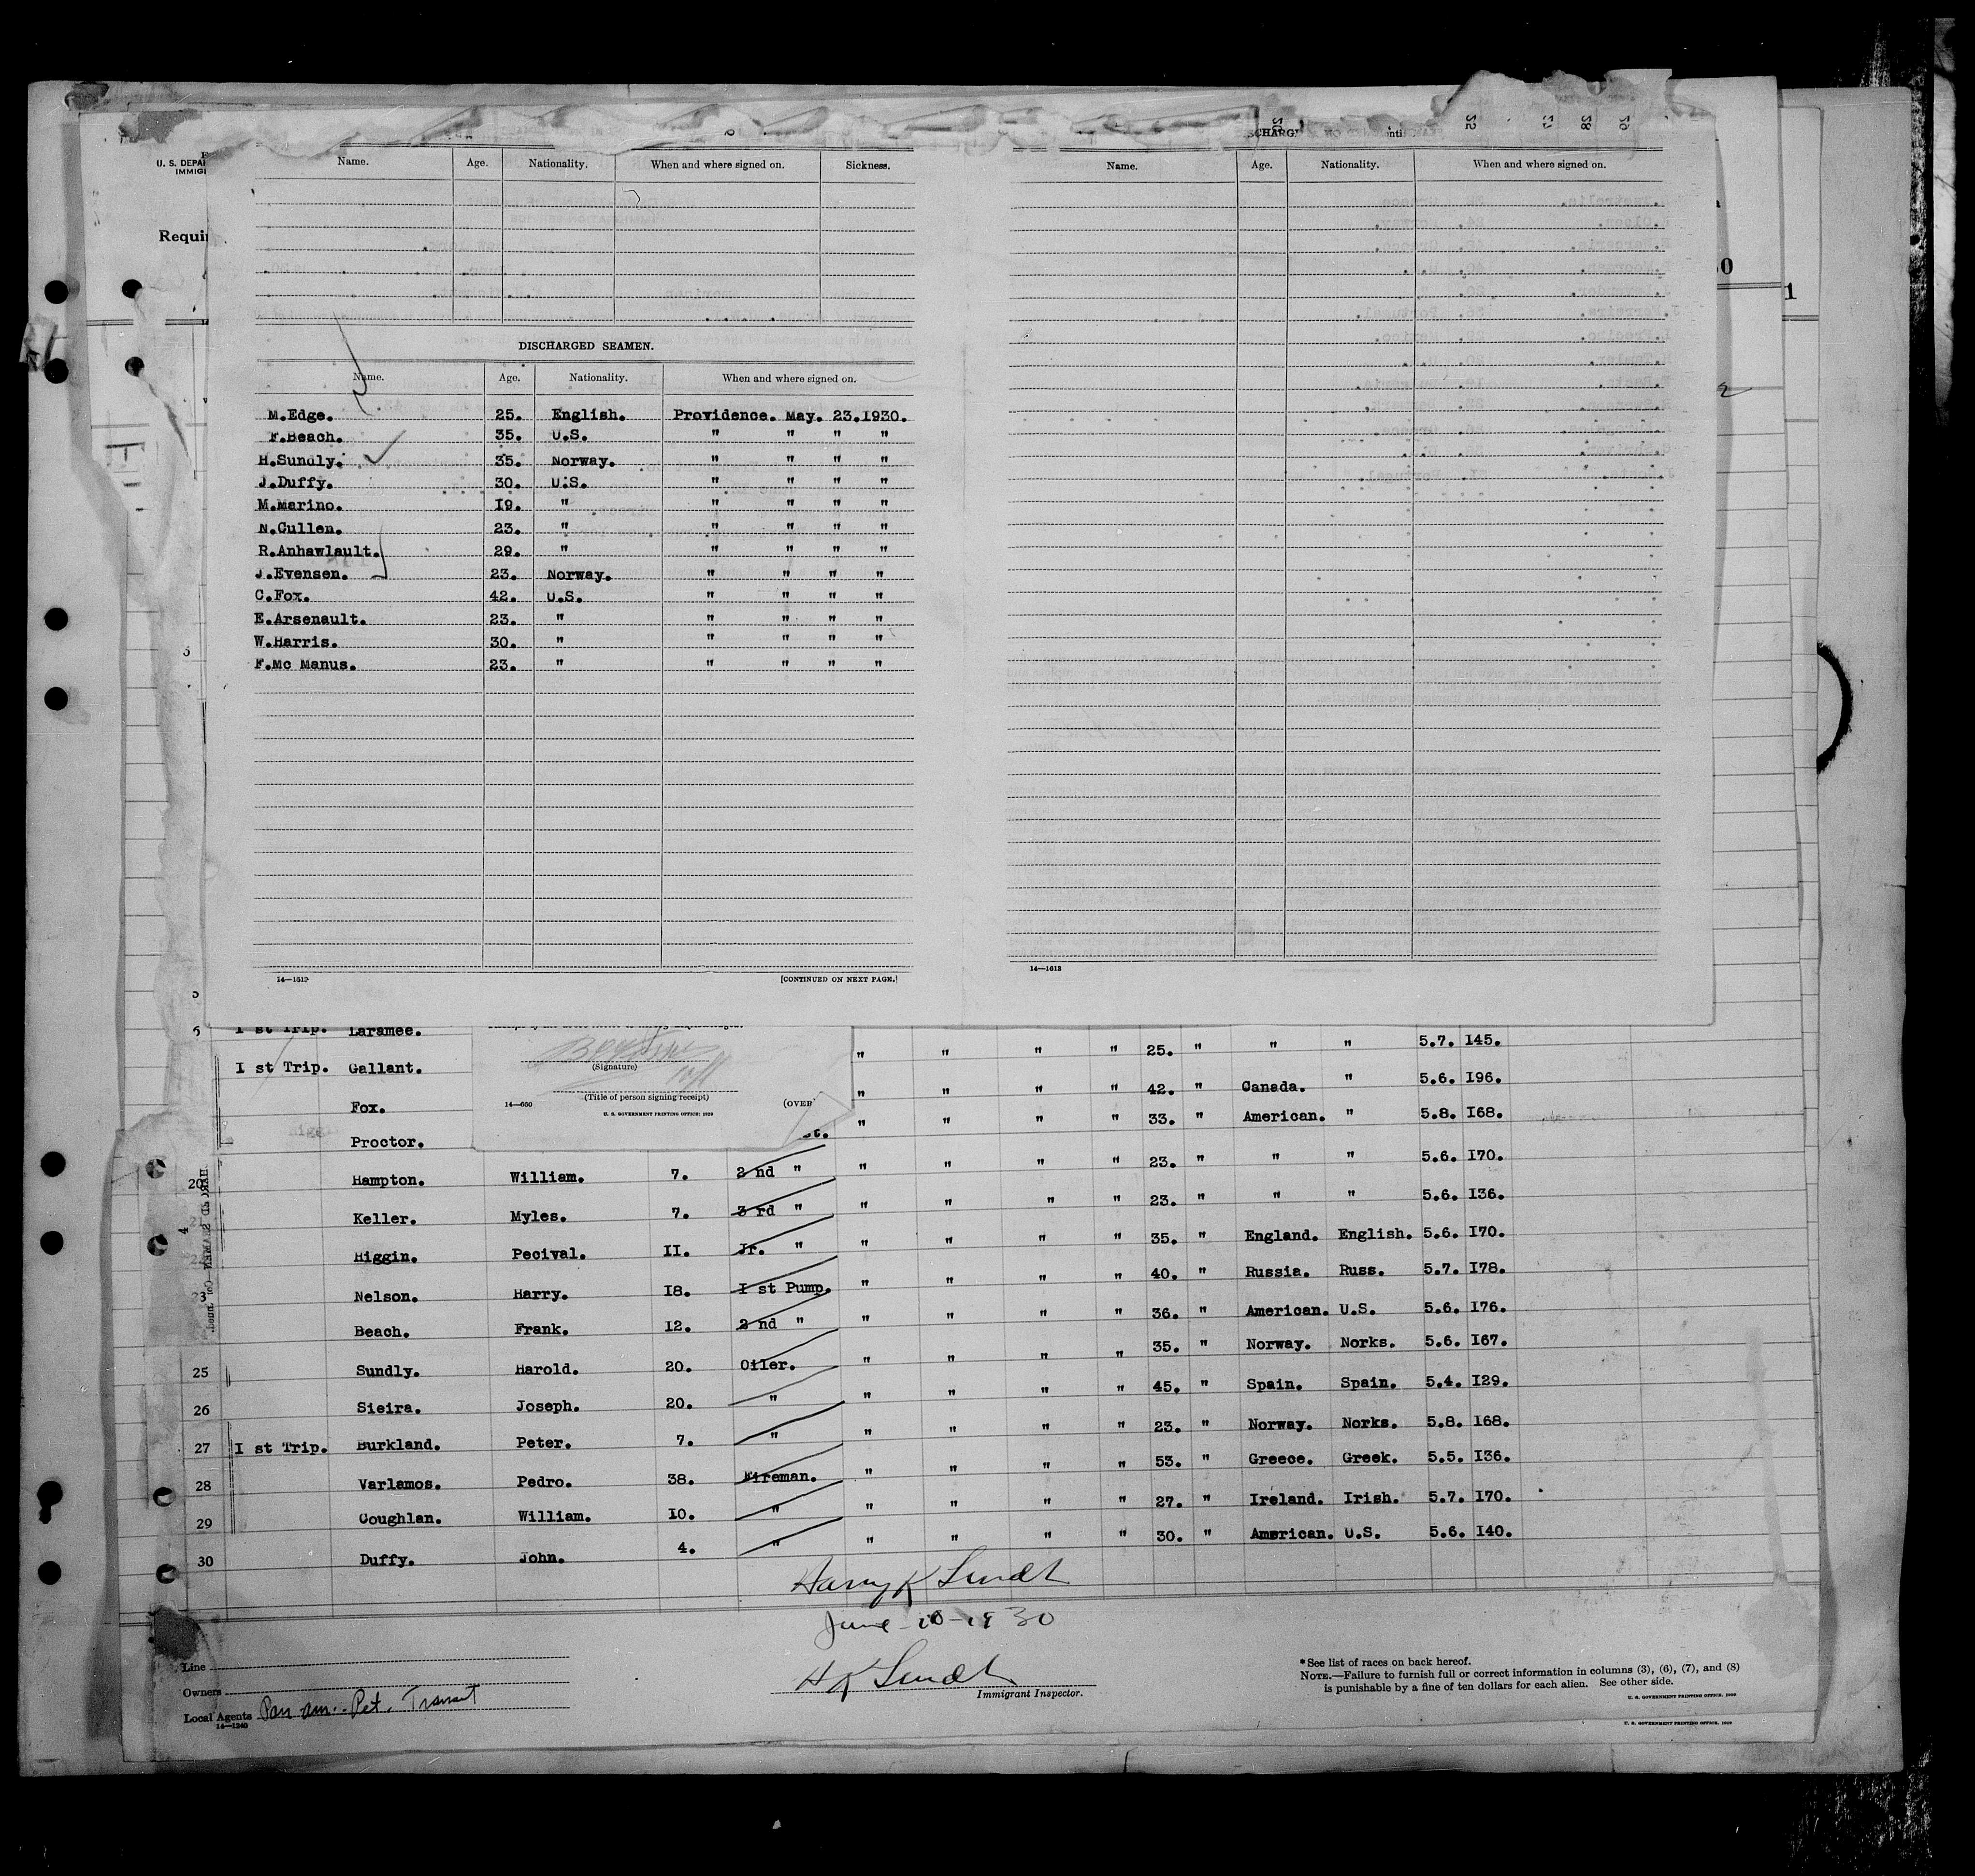 U. S. DEPAR
IMMIG
Requir
Name. Age. Nationality. When and where signed on. Sickness.
DISCHARGED SEAMEN.
Name. Age. Nationality. When and where signed on.
M.Edge. 25. English. Providence. May. 23.1930.
F.Beach. 35. U.S. " " " "
H.Sundly. 35. Norway. " " " "
J.Duffy. 30. U.S. " " " "
M.Marino. 19. " " " " "
N.Cullen. 23. " " " " "
R.Anhawlault. 29. " " " " "
J.Evensen. 23. Norway. " " " "
C.Fox. 42. U.S. " " " "
E.Arsenault. 23. " " " " "
W.Harris. 30. " " " " "
F.Mc Manus. 23. " " " " "
[CONTINUED ON NEXT PAGE.]
Name. Age. Nationality. When and where signed on.
14—1613
I st Trip. Laramee. " " " " 25. " " " 5.7. I45.
I st Trip. Gallant. " " " " 42. " Canada. " 5.6. I96.
Fox. " " " " 33. " American. " 5.8. I68.
(Signature)
(Title of person signing receipt)
14—660 (OVER)
U. S. GOVERNMENT PRINTING OFFICE: 1929
Proctor. " " " " 23. " " " 5.6. I70.
20 Hampton. William. 7. 2 nd " " " " " 23. " " " 5.6. I36.
Keller. Myles. 7. 3 rd " " " " " 35. " England. English. 5.6. I70.
Higgin. Pecival. II. Jr. " " " " " 40. " Russia. Russ. 5.7. I78.
23 Nelson. Harry. I8. I st Pump. " " " " 36. " American. U.S. 5.6. I76.
Beach. Frank. I2. 2 nd " " " " " 35. " Norway. Norks. 5.6. I67.
25 Sundly. Harold. 20. Oiler. " " " " 45. " Spain. Spain. 5.4. I29.
26 Sieira. Joseph. 20. " " " " " 23. " Norway. Norks. 5.8. I68.
27 I st Trip. Burkland. Peter. 7. " " " " " 53. " Greece. Greek. 5.5. I36.
28 Varlamos. Pedro. 38. Fireman. " " " " 27. " Ireland. Irish. 5.7. I70.
29 Coughlan. William. IO. " " " " " 30. " American. U.S. 5.6. I40.
30 Duffy. John. 4. " " " " "
Harry K Lundt
June 10-1930
H K Lundt
Immigrant Inspector.
Line
Owners
Local Agents Pan Am. Pet. Transit
14—1240
*See list of races on back hereof.
NOTE.—Failure to furnish full or correct information in columns (3), (6), (7), and (8)
is punishable by a fine of ten dollars for each alien. See other side.
U. S. GOVERNMENT PRINTING OFFICE. 1929
U. S. GOVERNMENT PRINTING OFFICE. 1929